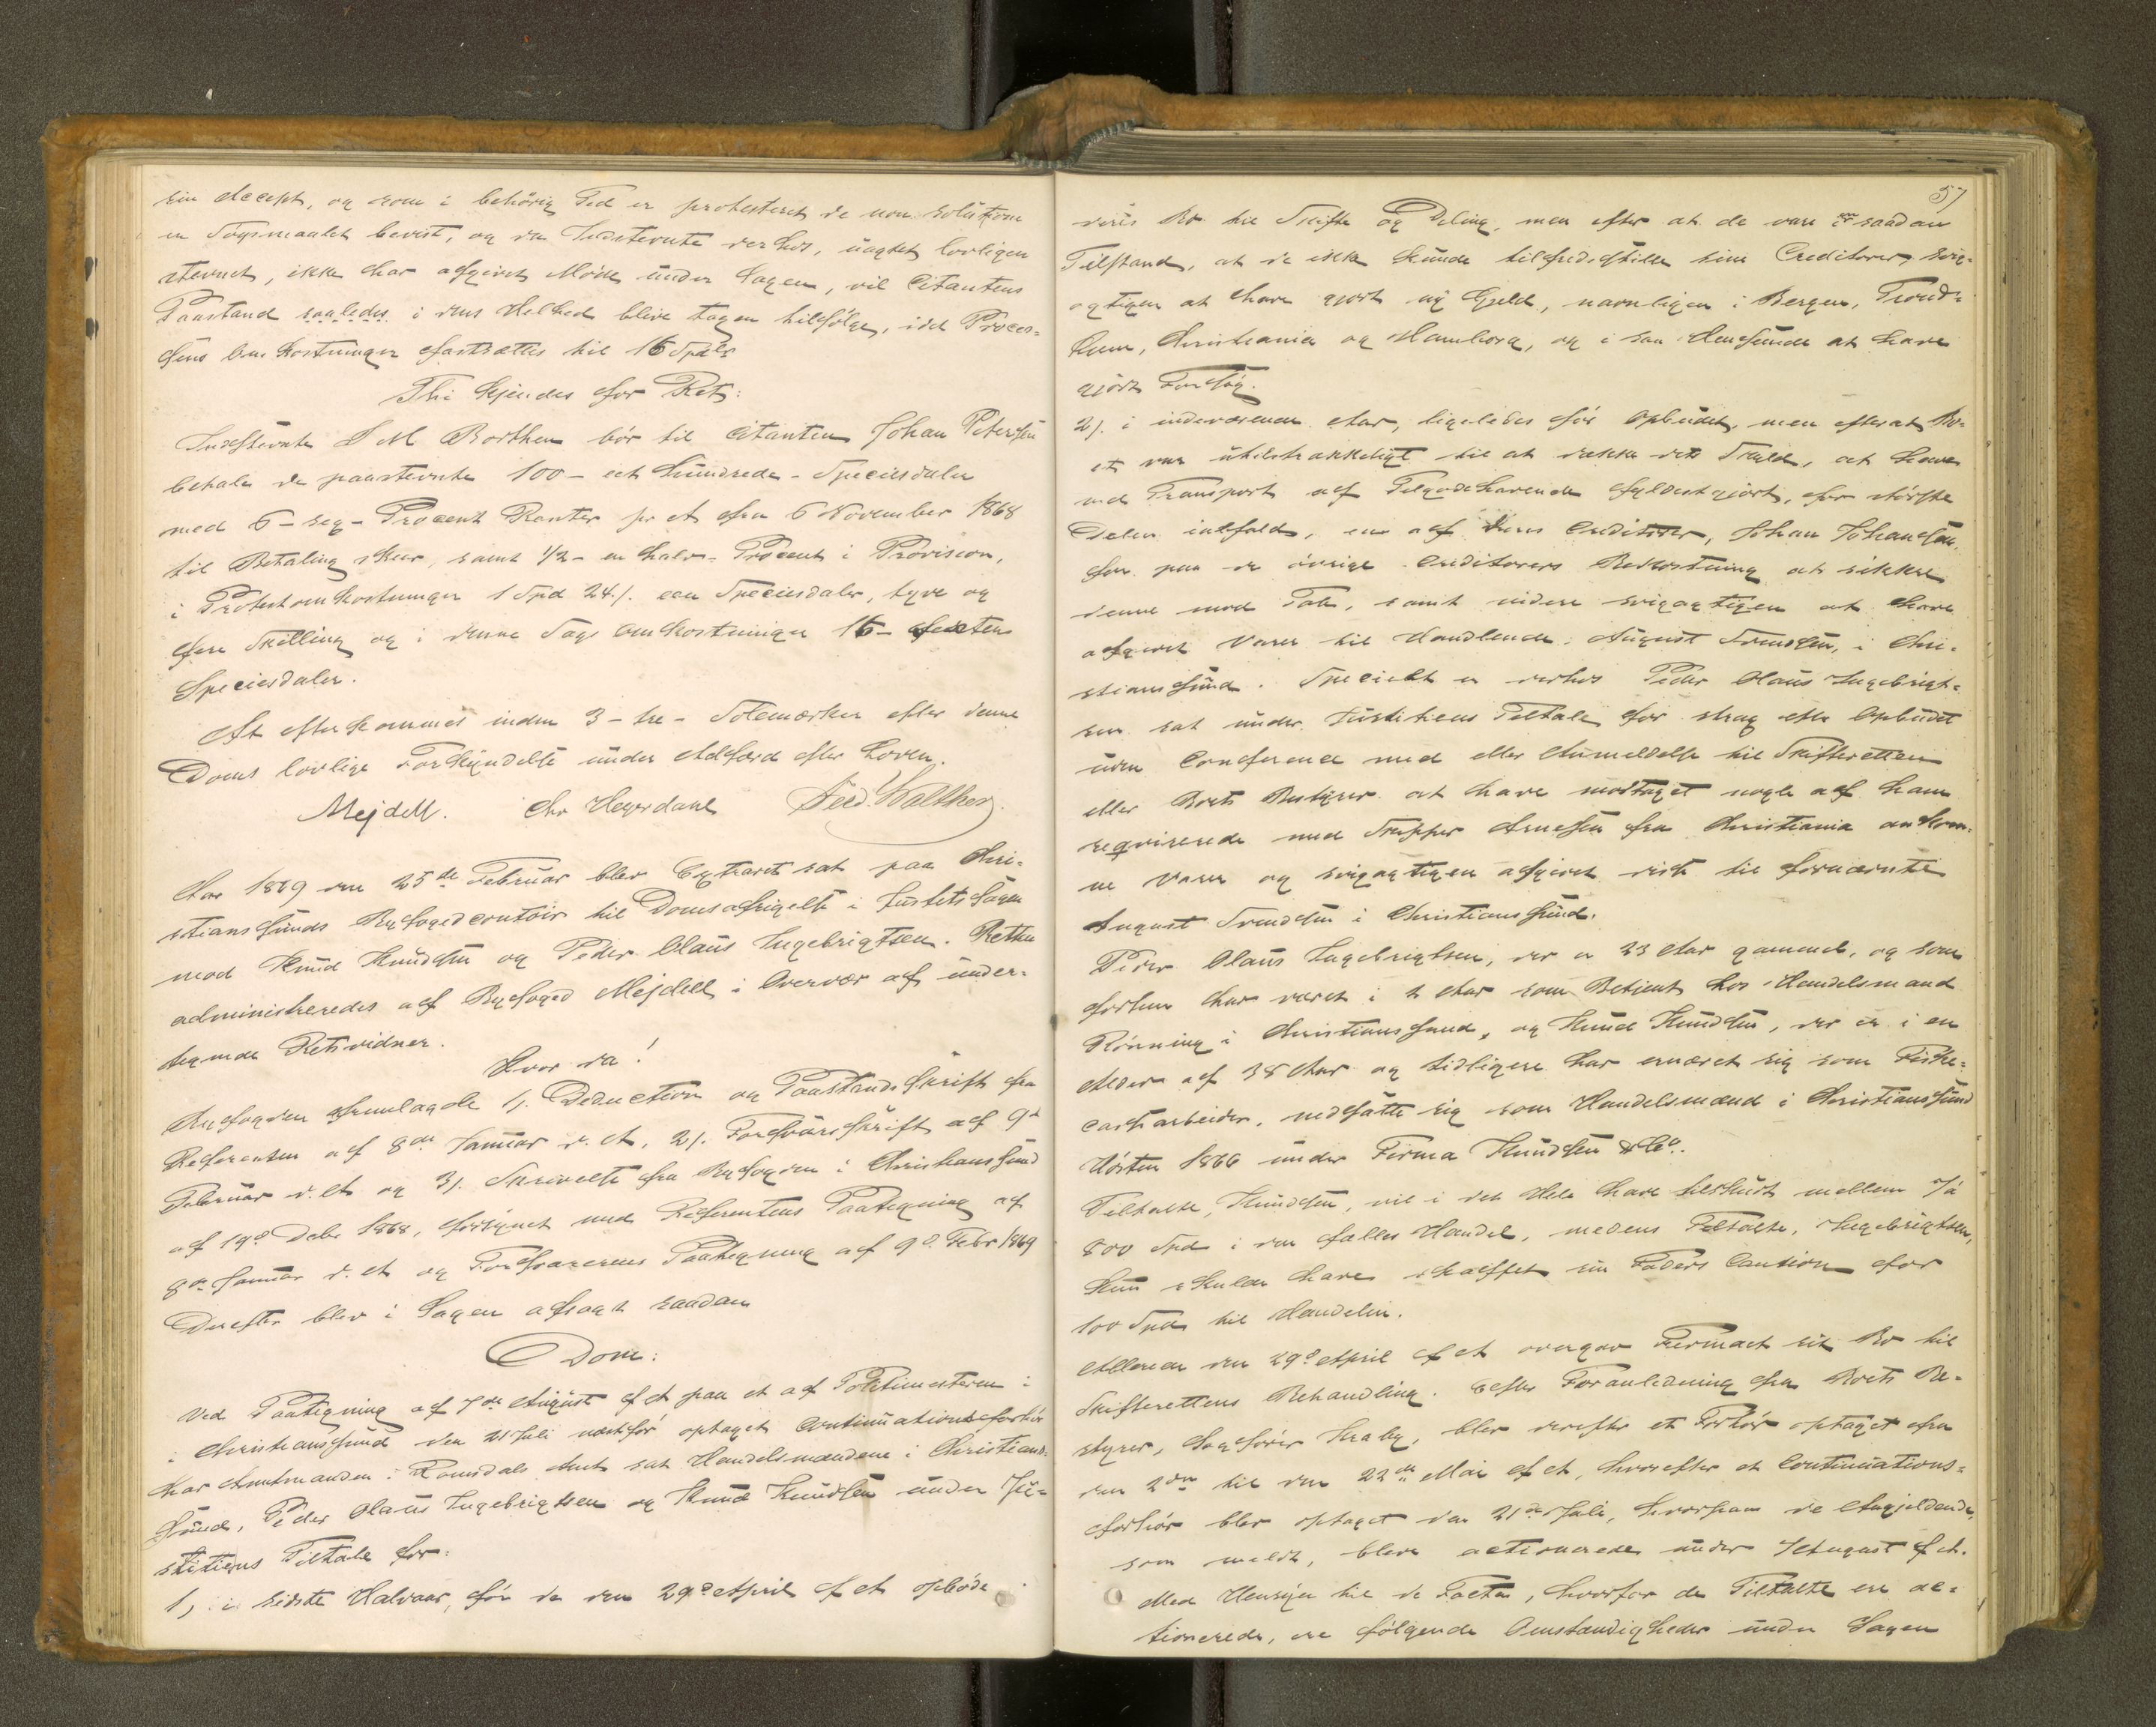 sin Accept, og som i behörig Tid er protesteret de non solutione
er Sögsmaalet bevist, og da Indstevnte derhos, uagtet lovligen
stevnet, ikke har afgivet Möde under Sagen, vil Citantens
Paastand saaledes i dens Helhed blive tagen tilfölge, idet Proces-
sens Omkostninger fastsættes til 16 Spdlr
Thi kjendes for Ret:
Indstevnte S M Borthen bör til Citanten Johan Petersen
betale de paastevnte 100 - eet hundrede - Speciesdaler
med 6 - sex - Procent Renter pr A fra 6 November 1868
til Betaling skeer, samt 1/2 - en halv - Procent i Provision,
i Protestomkostninger 1 Spd 24 /. een Speciesdaler, tyve og
fire Skilling og i denne Sags Omkostninger 16 - sexten
Speciesdaler.
At efterkommes inden 3 - tre - Solemærker efter denne
Doms lovlige Forkyndelse under Adfærd efter Loven.
Mejdell. Chr Heyerdahl Ferd. Walther.
Aar 1869 den 25de Februar blev Extraret sat paa Chri-
stianssunds Byfogedcontoir til Domsafsigelse i Justitssagen
mod Knud Knudsen og Peder Olaus Ingebrigtsen. Retten
administreredes af Byfoged Mejdell i Overvær af under-
tegnede Retsvidner.
Hvor da!
Byfogden fremlagde 1/. Deduction og Paastandsskrift fra
Referenten af 8de Januar d. A, 2/. Forsvarsskrift af 9d
Februar d. A og 3/. Skrivelse fra Byfogden i Christianssund
af 19d Debr 1868, forsynet med Referentens Paategning af
8de Januar d. A og Forsvarerens Paategning af 9d. Febr 1869
Derefter blev i Sagen afsagt saadan
Dom:
Ved Paategning af 7de August f A paa et af Politimesteren i
i Christianssund den 21 Juli næstför optaget Continuationsforhör
har Amtmanden i Romsdals Amt sat Handelsmændene i Christians-
sund, Peder Olaus Ingebrigtsen og Knud Knudsen under Ju-
stitiens Tiltale for:
1, i sidste Halvaar, för de den 29d April f A opböde
57
deres Bo til Skifte og Deling, men efter at de vare i saadan
Tilstand, at de ikke kunde tilfredsstille sine Creditorer, svig-
agtigen at have gjort ny Gjeld, navnligen i Bergen, Trond-
hjem, Christiania og Hamborg, og i saa Henseende at have
gjört Forsög.
2/. i indeværende Aar, ligeledes för Opbudet, men efterat Bo-
et var utilstrækkeligt til at dække dets Skyld, at have
ved Transport af Tilgodehavende fyldestgjort, for störste
Delen ialfald, en af deres Creditorer, Johan Johansen,
for paa de övrige Creditorers Bekostning at sikkre
denne mod Tab, samt videre svigagtigen at have
afgivet Varer til Handlende August Svendsen, i Chri-
stianssund. Specielt er derhos Peder Olaus Ingebrigt-
sen sat under Justitiens Tiltale for strax efter Opbudet
uden Conference med eller Anmeldelse til Skifteretten
eller Boets Bestyrer at have modtaget nogle af ham
reqvirerede med Skipper Arnesen fra Christiania ankom-
ne Varer og svigagtigen afgivet disse til fornævnte
August Svendsen i Christianssund.
Peder Olaus Ingebrigtsen, der er 23 Aar gammel, og som
forhen har været i 2 Aar som Betjent hos Handelsmand
Rönning i Christianssund, og Knud Knudsen, der er i en
Alder af 38 Aar og tidligere har ernæret sig som Fiske-
arbeider, nedsatte sig som Handelsmænd i Christianssund
Hösten 1866 under Firma Knudsen & Co.
Tiltalte, Knudsen, vil i det Hele have tilskudt mellem 7 à
800 Spd i den fælles Handel, medens Tiltalte, Ingebrigtsen,
kun skulde have skaffet sin Faders Caution for
100 Spd til Handelen.
Allerede den 29d April f A overgav Firmaet sit Bo til
Skifterettens Behandling. Efter Foranledning fra Boets Be-
styrer, Sagförer Kraby, blev derefter et Forhör optaget fra
den 2den til den 22de Mai f A, hvorefter et Continuations-
forhör blev optaget den 21de Juli, hvorpaa de Angjeldende,
som meldt, bleve actionerede under 7 August f A.
Med Hensyn til de Facta, hvorfor de Tiltalte ere ac-
tionerede, ere fölgende Omstændigheder under Sagen